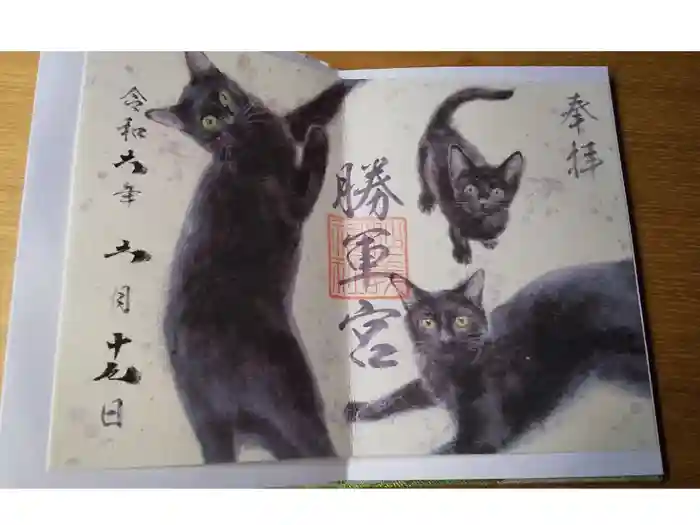 奉拝
勝軍宮
令和六年六月十七日